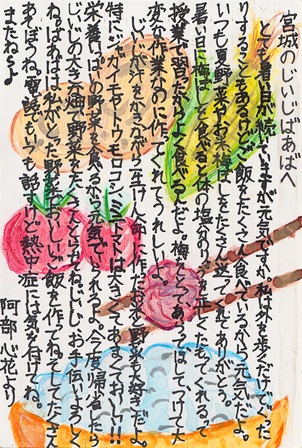 宮城のじいじばあばへ
とても暑い日が続いていますが元気ですか。私は外を歩くだけでぐったり
することもあるけど、ご飯をたくさん食べているから元気だよ。
いつも夏野菜やお米、梅干しをたくさん送ってくれてありがとう。
暑い日に梅干しを食べると体の塩分のバランスを正しくたもてれるって
授業で習ったからよく食べるんだよ。梅をとって、あらって、ほして、つけて大
変な作業なのに作ってくれてうれしいよ。
じいじが汗をかきながら一生けん命作ったお米や野菜も大好きだよ。
特にジャガイモやトウモロコシ、ミニトマトは大きくてあまくておいしい!!
栄養いっぱいの野菜を食べるから元気でいられるよ。今度帰省したら
じいじの大きな畑で野菜をたくさんとらせてね。じいじ、お手伝いよろしく
ね。ばあばは私がとった野菜でおいしいご飯を作ってね。そしてたくさん
あそぼうね。電話でもいつも話すけど熱中症には気を付けてね。
またねーっ♪
阿部 心花より